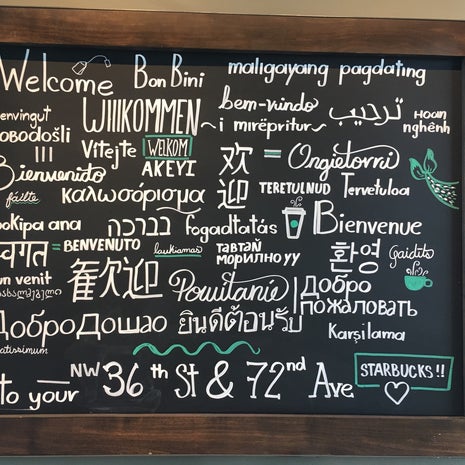 Welcome Bon Bini maligayang pagdating
WIllKOMMEN bem-vindo ترحيب Hoan nghênh
i mirëpritur
Vítejte WELKOM AKEYI 欢迎 = Ongietorri
Bienvenido TERETULNUD Tervetuloa
fáilte καλωσόρισμα
ברכה fogadtatás Bienvenue
BENVENUTO laukiamas тавтай морилно уу 환영 Gaidīts
un venit 歡迎 Powitanie Добро пожаловать
Добро Дошао ยินดีต้อนรับ Karşilama
to your NW 36th St & 72nd Ave STARBUCKS!!